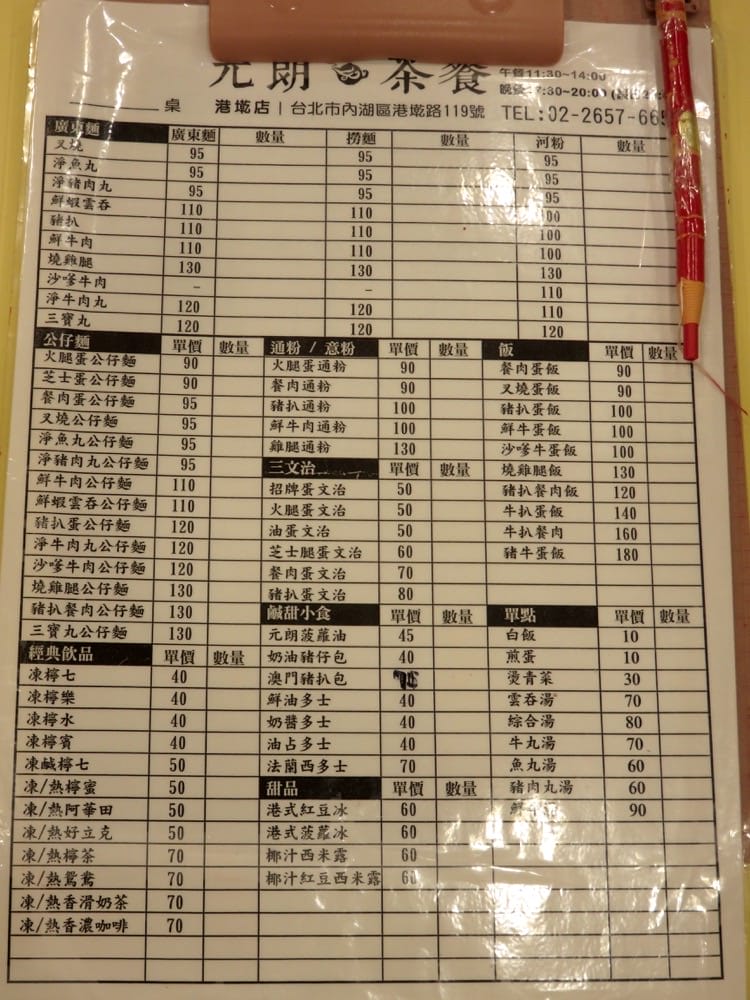 元朗 茶餐
午餐11:30~14:00
晚餐17:30~20:00
桌 港墘店 | 台北市內湖區港墘路119號 TEL:02-2657-665
廣東麵 廣東麵 數量 撈麵 數量 河粉 數量
叉燒 95 95 95
淨魚丸 95 95 95
淨豬肉丸 95 95 95
鮮蝦雲吞 110 110 100
豬扒 110 110 100
鮮牛肉 110 110 100
燒雞腿 130 130 130
沙嗲牛肉 – – 110
淨牛肉丸 120 120 110
三寶丸 120 120 120
公仔麵 單價 數量
火腿蛋公仔麵 90
芝士蛋公仔麵 90
餐肉蛋公仔麵 95
叉燒公仔麵 95
淨魚丸公仔麵 95
淨豬肉丸公仔麵 95
鮮牛肉公仔麵 110
鮮蝦雲吞公仔麵 110
豬扒蛋公仔麵 120
淨牛肉丸公仔麵 120
沙嗲牛肉公仔麵 120
燒雞腿公仔麵 130
豬扒餐肉公仔麵 130
三寶丸公仔麵 130
經典飲品 單價 數量
凍檸七 40
凍檸樂 40
凍檸水 40
凍檸賓 40
凍鹹檸七 50
凍/熱檸蜜 50
凍/熱阿華田 50
凍/熱好立克 50
凍/熱檸茶 70
凍/熱鴛鴦 70
凍/熱香滑奶茶 70
凍/熱香濃咖啡 70
通粉 / 意粉 單價 數量
火腿蛋通粉 90
餐肉通粉 90
豬扒通粉 100
鮮牛肉通粉 100
雞腿通粉 130
三文治 單價 數量
招牌蛋文治 50
火腿蛋文治 50
油蛋文治 50
芝士腿蛋文治 60
餐肉蛋文治 70
豬扒蛋文治 80
鹹甜小食 單價 數量
元朗菠蘿油 45
奶油豬仔包 40
澳門豬扒包
鮮油多士 40
奶醬多士 40
油占多士 40
法蘭西多士 70
甜品 單價 數量
港式紅豆冰 60
港式菠蘿冰 60
椰汁西米露 60
椰汁紅豆西米露 60
飯 單價 數量
餐肉蛋飯 90
叉燒蛋飯 90
豬扒蛋飯 100
鮮牛蛋飯 100
沙嗲牛蛋飯 100
燒雞腿飯 130
豬扒餐肉飯 120
牛扒蛋飯 140
牛扒餐肉 160
豬牛蛋飯 180
單點 單價 數量
白飯 10
煎蛋 10
燙青菜 30
雲吞湯 70
綜合湯 80
牛丸湯 70
魚丸湯 60
豬肉丸湯 60
鮮牛 90